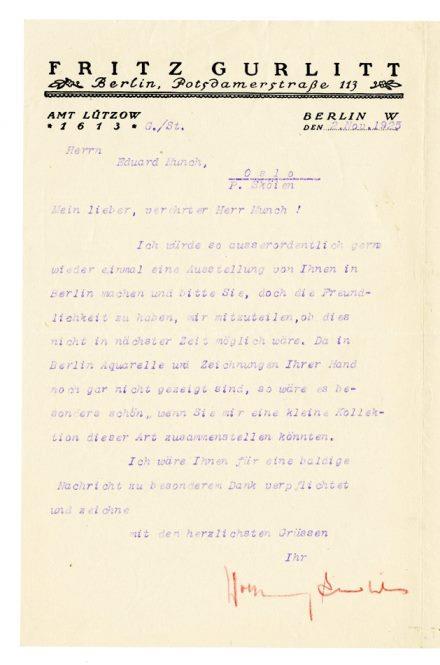 FRITZ GURLITT
Berlin, Potsdamerstraße 113
AMT LÜTZOW
* 1613 * G./St.
BERLIN W
DEN 2.Nov.1925
Herrn
Eduard Munch,
Oslo
P. Skölen
Mein lieber, verehrter Herr Munch !
Ich würde so ausserordentlich gern
wieder einmal eine Ausstellung von Ihnen in
Berlin machen und bitte Sie, doch die Freund-
lichkeit zu haben, mir mitzuteilen, ob dies
nicht in nächster Zeit möglich wäre. Da in
Berlin Aquarelle und Zeichnungen Ihrer Hand
noch gar nicht gezeigt sind, so wäre es be-
sonders schön, wenn Sie mir eine kleine Kollek-
tion dieser Art zusammenstellen könnten.
Ich wäre Ihnen für eine baldige
Nachricht zu besonderem Dank verpflichtet
und zeichne
mit den herzlichsten Grüssen
Ihr